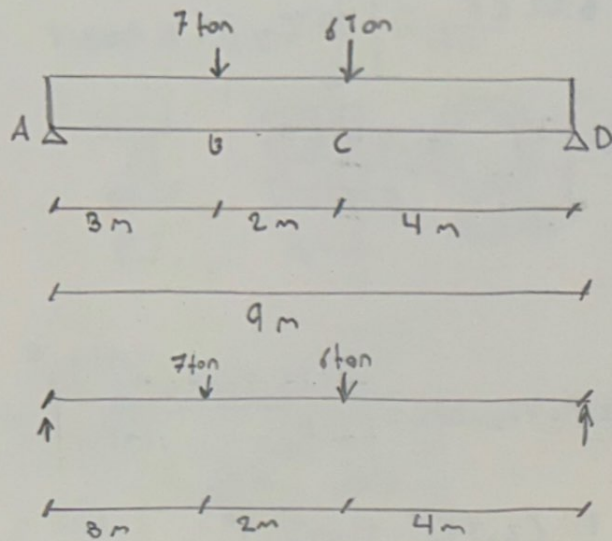 7 ton 6 Ton
A B C D
3 m 2 m 4 m
9 m
7 ton 6 ton
3 m 2 m 4 m